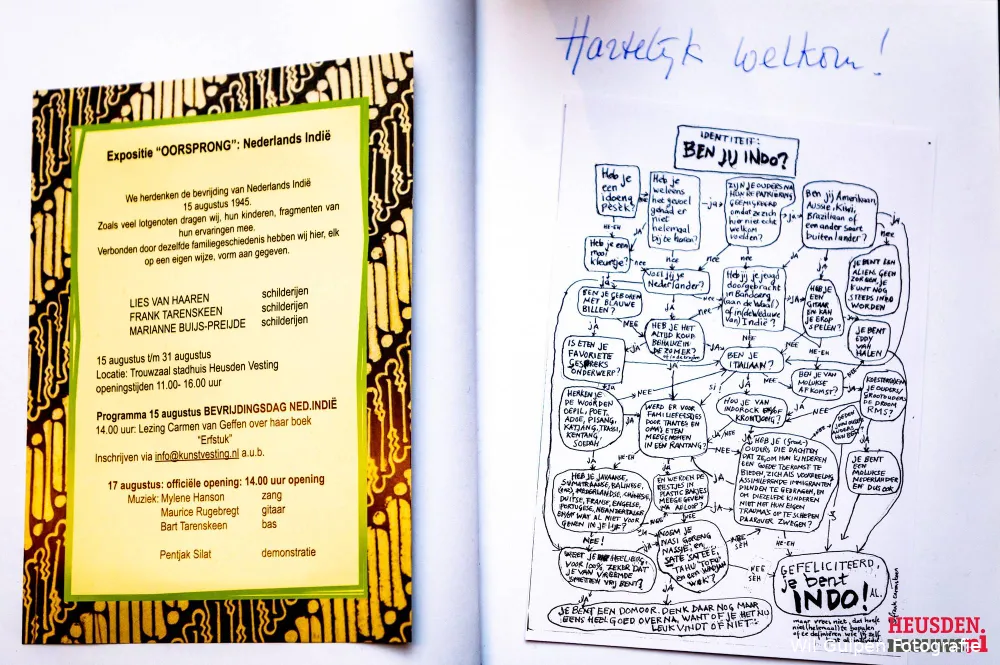 Expositie “OORSPRONG”: Nederlands Indië
We herdenken de bevrijding van Nederlands Indië
15 augustus 1945.
Zoals veel lotgenoten dragen wij, hun kinderen, fragmenten van
hun ervaringen mee.
Verbonden door dezelfde familiegeschiedenis hebben wij hier, elk
op een eigen wijze, vorm aan gegeven.
LIES VAN HAAREN schilderijen
FRANK TARENSKEEN schilderijen
MARIANNE BUIJS-PREIJDE schilderijen
15 augustus t/m 31 augustus
Locatie: Trouwzaal stadhuis Heusden Vesting
openingstijden 11.00- 16.00 uur
Programma 15 augustus BEVRIJDINGSDAG NED.INDIË
14.00 uur: Lezing Carmen van Geffen over haar boek
“Erfstuk”
Inschrijven via info@kunstvesting.nl a.u.b.
17 augustus: officiële opening: 14.00 uur opening
Muziek: Mylene Hanson zang
Maurice Rugebregt gitaar
Bart Tarenskeen bas
Pentjak Silat demonstratie
Hartelijk welkom!
IDENTITEIT:
BEN JIJ INDO?
Heb je
een
idoeng
pèsèk?
Heb je
weleens
het gevoel
gehad er
niet
helemaal
bij te horen?
ja
ZIJN JE OUDERS NA
HUN REPATRIËRING
GEËMIGREERD
omdat ze zich
hier niet echt
welkom
voelden?
JA
Ben jij Amerikaan,
AUSSIE, KIWI,
Braziliaan of
een ander soort
buitenlander?
JA
nee
HE-EH
Heb je een
mooi
kleurtje?
nee
nee
nee
JA
JE BENT EEN
ALIEN. GEEN
ZORGEN, JE
KUNT NOG
STEEDS INDO
WORDEN
Voel jij je
Nederlander?
Heb jij je jeugd
doorgebracht
in Bandoeng
(aan de Waal)
of in (de Weduwe
van) Indië?
JA
HEB JE
EEN
GITAAR
EN KAN
JE EROP
SPELEN?
BEN JE GEBOREN
MET BLAUWE
BILLEN?
JA
NEE
HEB JE HET
ALTIJD KOUD
BEHALVE IN
DE ZOMER?
nee
JE BENT
EDDY
VAN
HALEN
HE-EH
IS ETEN JE
FAVORIETE
GESPREKS
ONDERWERP?
JA
BEN JE
ITALIAAN?
NEE
BEN JE VAN
MOLUKSE
AFKOMST?
JA
KOESTER(D)EN
JE OUDERS/
GROOTOUDERS
DE DROOM
RMS?
HERKEN JE
DE WOORDEN
OEPIL, POET,
ADOE, PISANG,
KATJANG, TRASSI,
KENTANG,
SOEDAH
JA
NEE
WERD ER VOOR
FAMILIEFEESTJES
DOOR TANTES EN
OMA'S ETEN
MEEGENOMEN
IN EEN RANTANG?
SI
JA
HOU JE VAN
INDOROCK EN/OF
KRONTJONG?
JA
NEE
HEB JE (Groot-)
OUDERS DIE DACHTEN
DAT ZE, OM HUN KINDEREN
EEN GOEDE TOEKOMST TE
BIEDEN, ZICH ALS VOORBEELDIG
ASSIMILERENDE IMMIGRANTEN
DIENDEN TE GEDRAGEN, EN
OM DIEZELFDE KINDEREN
NIET MET HUN EIGEN
TRAUMA'S OP TE SCHEPEN
DAAROVER ZWEGEN?
JA
JE BENT
EEN
MOLUKSE
NEDERLANDER
EN DUS OOK
HEB JE JAVAANSE,
SUMATRAANSE, BALINESE,
NEDERLANDSE, CHINESE,
DUITSE, FRANSE, ENGELSE,
PORTUGESE, NEANDERTALER
EN/OF WAT AL NIET VOOR
GENEN IN JE LIJF?
HE-EH
JA
EN WERDEN DE
RESTJES IN
PLASTIC BAKJES
MEEGEGEVEN
NA AFLOOP?
NEE!
NEE
WEET JE HEEL ZEKER,
VOOR 100% ZEKER DAT
JE VAN VREEMDE
SMETTEN VRIJ BENT?
NOEM JE
NASI GORENG
NASSIE, EN
SATE SATEEE,
TAHU TOFU
EN EEN WADJAN
WOK?
NEE
SEH
HE-EH
JA
JE BENT EEN DOMOOR. DENK DAAR NOG MAAR
EENS HEEL GOED OVER NA, WANT OF JE HET NU
LEUK VINDT OF NIET:
GEFELICITEERD,
je bent
INDO!
maar vrees niet, dat hoeft
niet helemaal te bepalen
HEUSDEN.
Wil Gulpen Fotografie